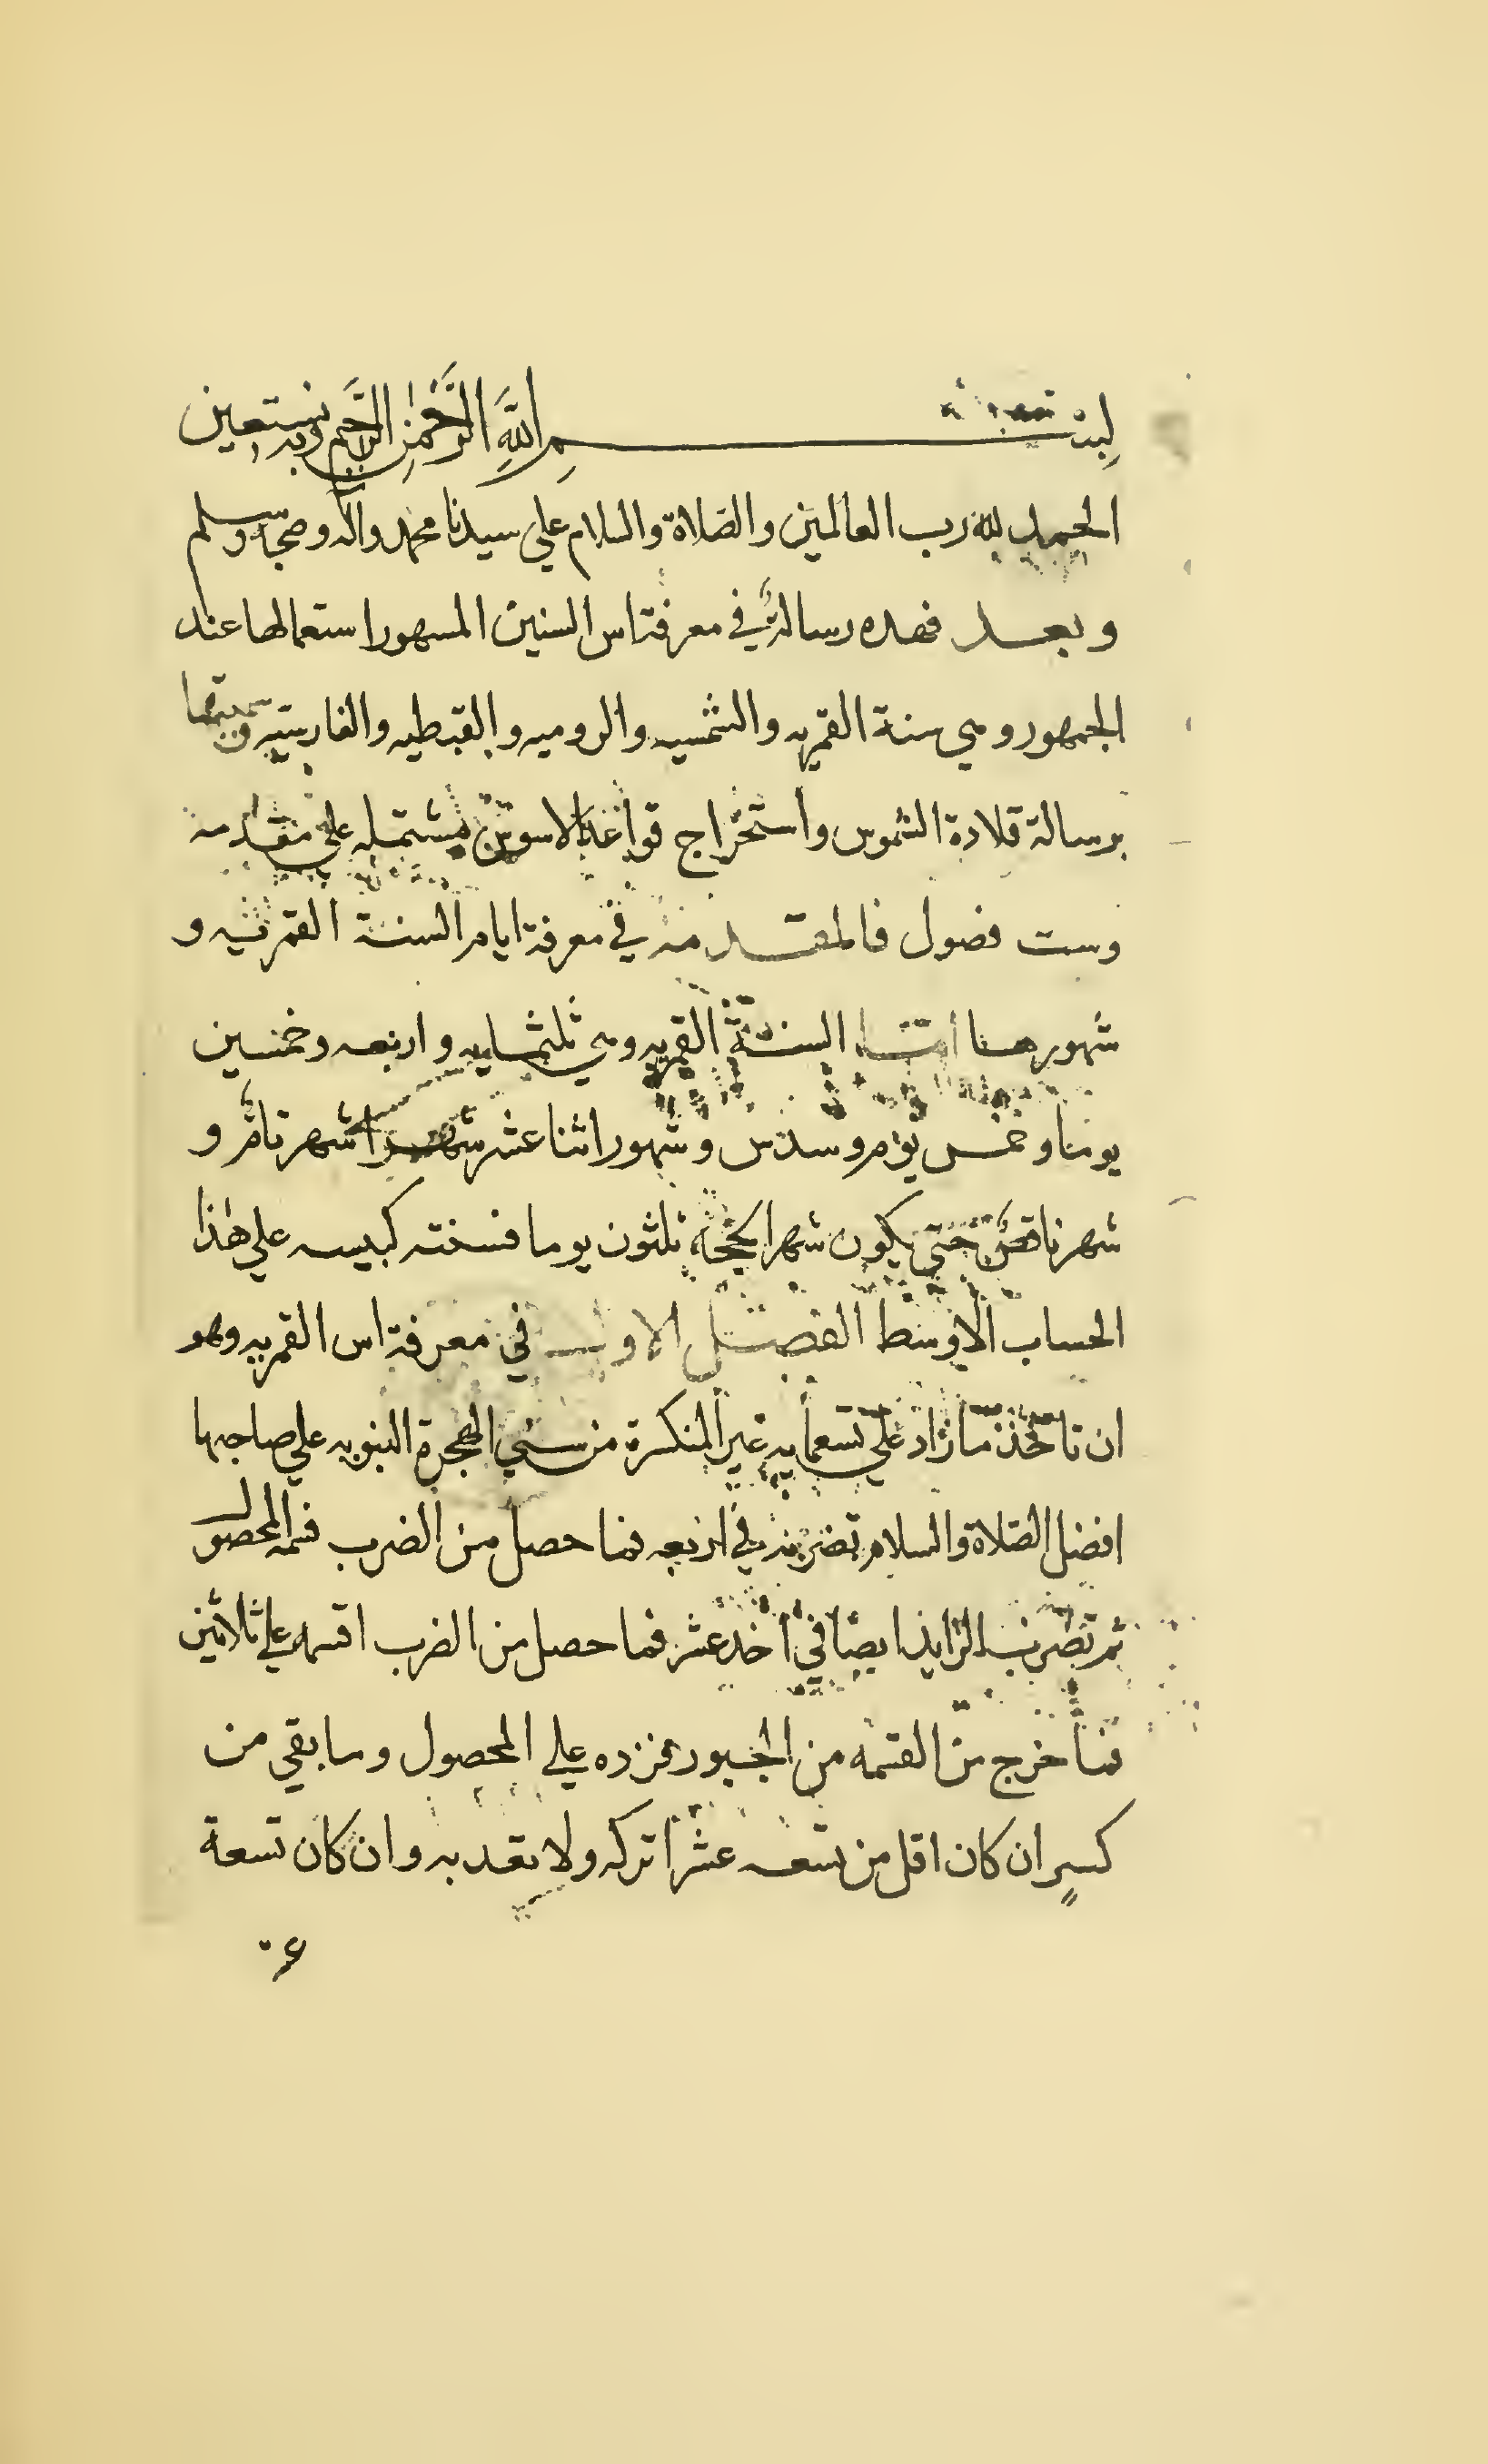 بسم الله الرحمن الرحيم وبه نستعين
الحمد لله رب العالمين والصلاة والسلام علي سيدنا محمد واله وصحبه وسلم
وبعد فهده رسالة في معرفة اس السنين المسهور استعمالها عند
الجمهور وهي سنة القمريه والشمسيه والروميه والقبطيه والفارسيه وسميتها
برسالة قلادة الشموس واستخراج قواعد الاسوس مشتمله علي مقدمه
وست فصول فالمقدمه في معرفة ايام السنة القمريه و
شهورها اما السنة القمريه وهي ثلثمايه واربعه وخمسين
يوما وخمس يوم وسدس وشهورا اثنا عشر شهرا شهر تام و
شهر ناقص حتي يكون شهر الحجه ثلثون يوما فسنته كبيسه علي هذا
الحساب الاوسط الفصل الاول في معرفة اس القمريه وهو
ان تاخذ ما زاد علي تسعمايه غير المنكسرة من سني الهجرة النبويه علي صاحبها
افضل الصلاة والسلام تضربه في اربعه فما حصل من الضرب فسمه المحصول
ثم تضرب الزايد ايضا في احد عشر فما حصل من الضرب اقسمه علي ثلاثين
فما خرج من القسمه من الجبور فزده علي المحصول وما بقي من
كسر ان كان اقل من تسعه عشر اتركه ولا تعد به وان كان تسعة